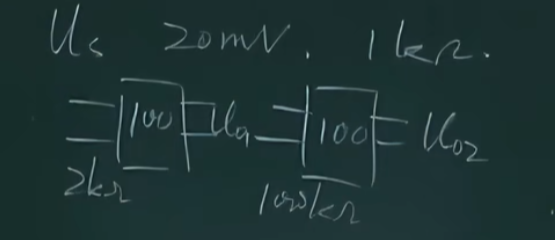 Us 20mV. 1kΩ.
100 Uo1 100 Uo2
2kΩ 100kΩ